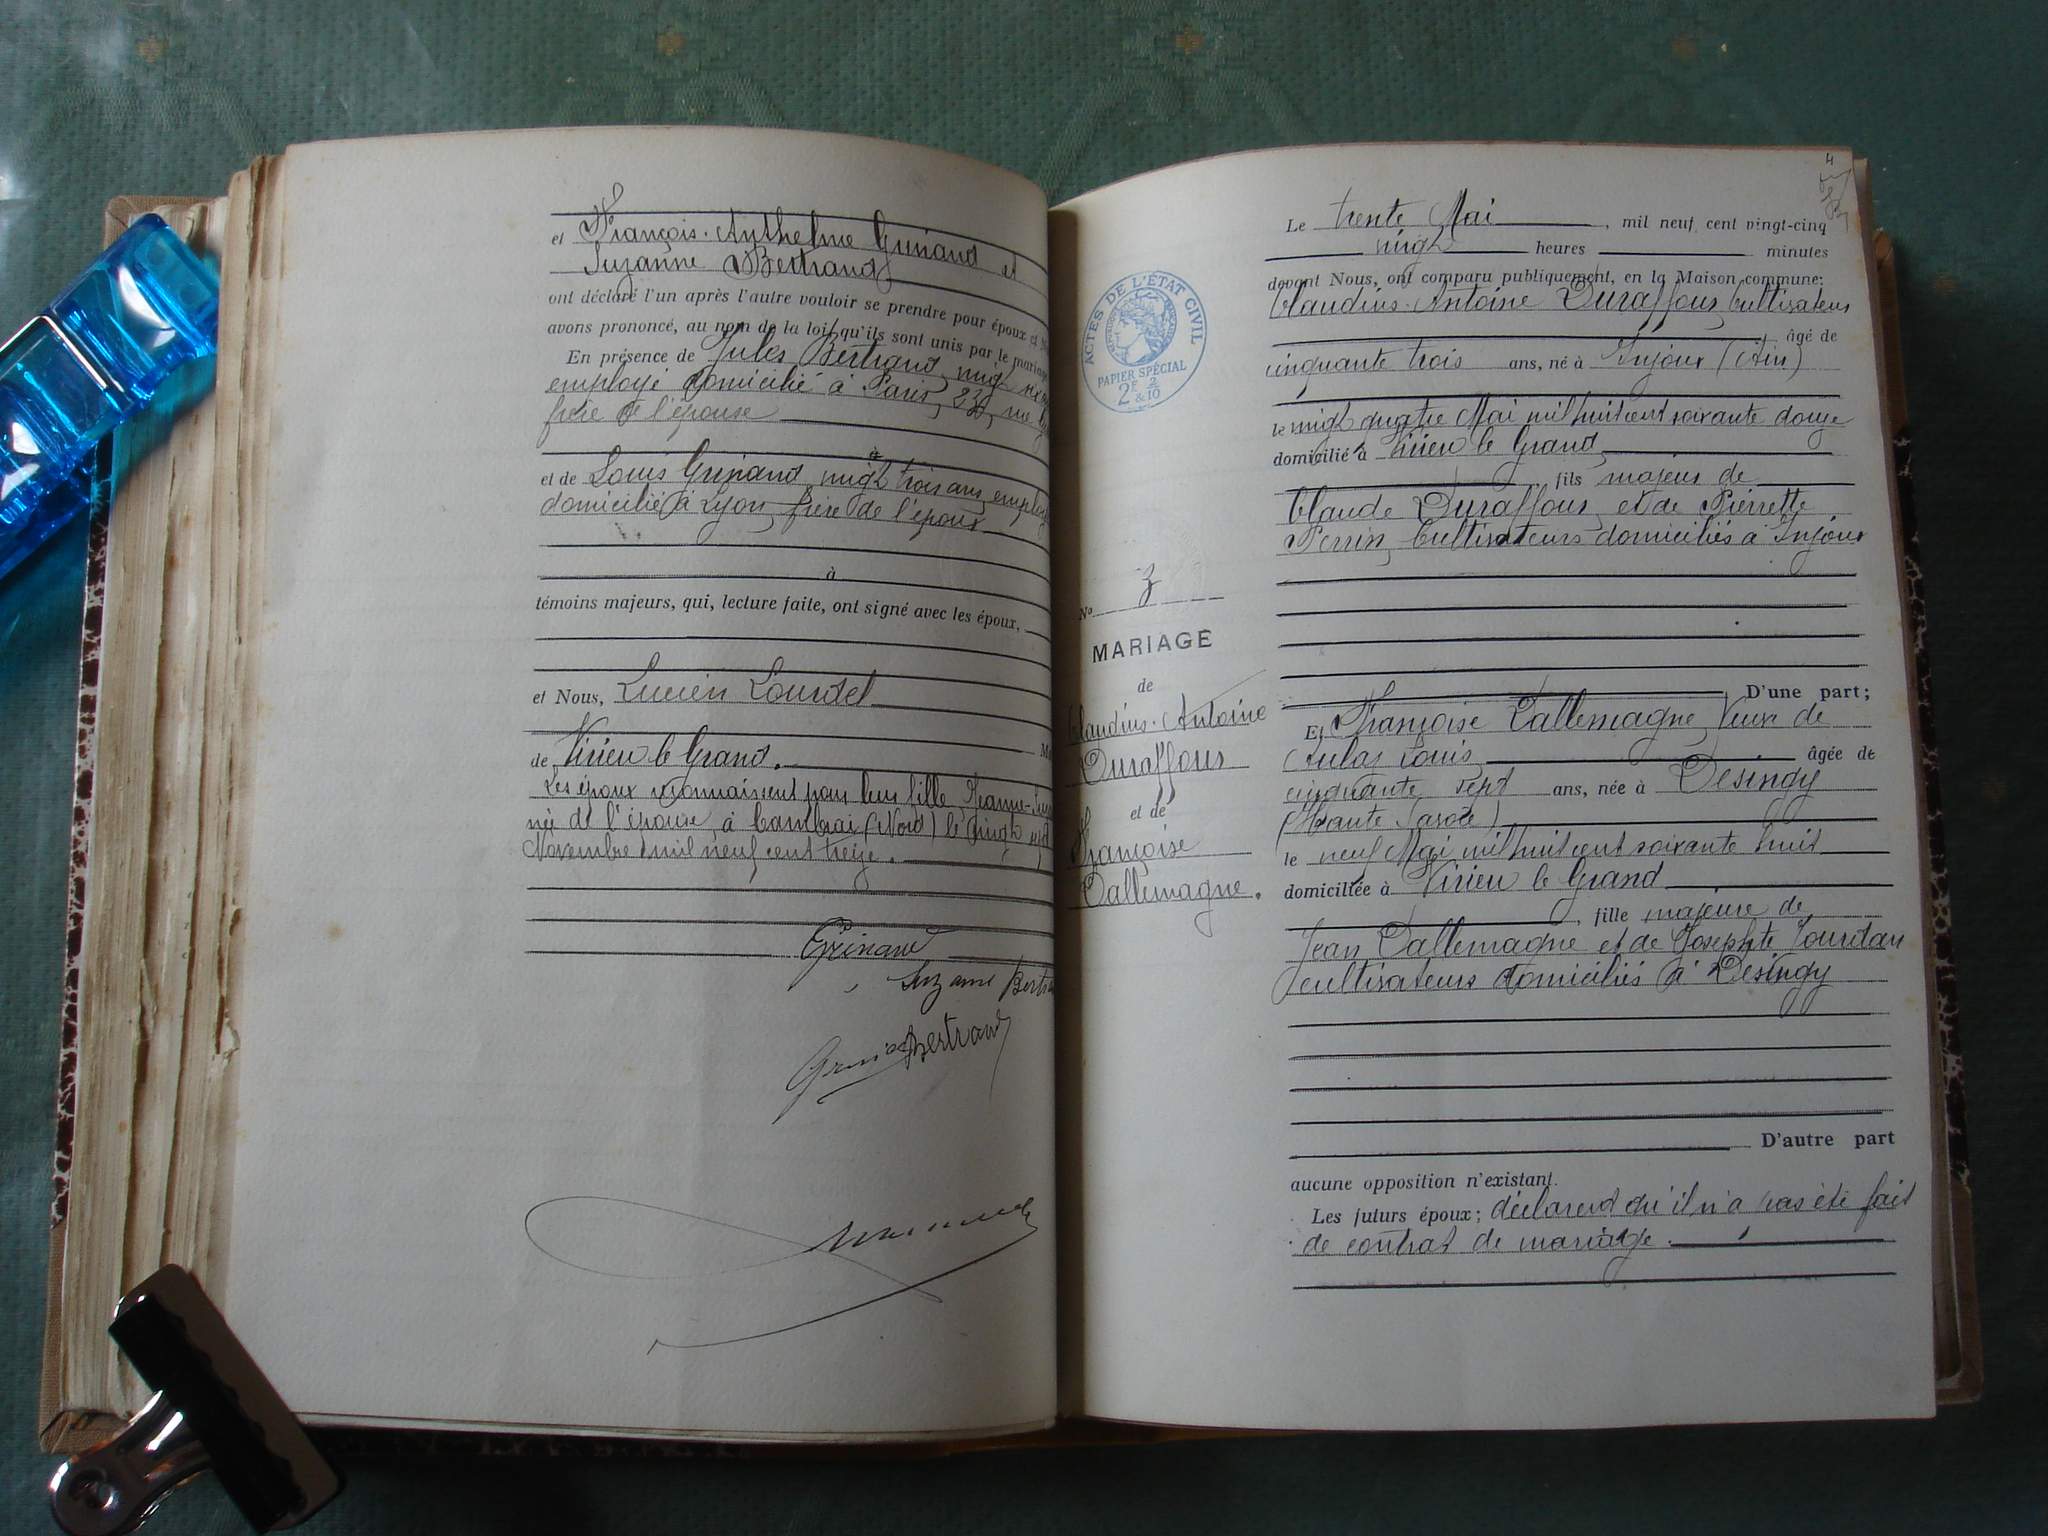 et François-Anthelme Guinand et
Suzanne Bertrand
ont déclaré l'un après l'autre vouloir se prendre pour époux et
avons prononcé, au nom de la loi, qu'ils sont unis par le mariage
En présence de Jules Bertrand, vingt
employé domicilié à Paris, 23, rue
frère de l'épouse
à
et de Louis Guinand, vingt trois ans, employé
domicilié à Lyon, frère de l'époux
à
témoins majeurs, qui, lecture faite, ont signé avec les époux,
et Nous, Lucien Lourdel
de Virieu le Grand.
Les époux reconnaissent pour leur fille, Jeanne-
née de l'épouse, à Cambrai (Nord) le vingt sept
Novembre mil neuf cent treize.
Suzanne Bertra
Bertrand
4
Le trente Mai, mil neuf cent vingt-cinq
vingt heures minutes
devant Nous, ont comparu publiquement, en la Maison commune:
Claudius-Antoine Duraffour, Cultivateur
âgé de
cinquante trois ans, né à Injoux (Ain)
le vingt quatre Mai mil huit cent soixante douze
domicilié à Virieu le Grand
, fils majeur de
Claude Duraffour, et de Pierrette
Perrin, Cultivateurs domiciliés à Injoux
D'une part;
Et Françoise Dallemagne, Veuve de
Aulaz Louis, âgée de
cinquante sept ans, née à Desingy
(Haute Savoie)
le neuf Mai mil huit cent soixante huit
domiciliée à Virieu le Grand
, fille majeure de
Jean Dallemagne et de Josephte Jourdan
cultivateurs domiciliés à Desingy
D'autre part
aucune opposition n'existant.
Les futurs époux; déclarent qu'il n'a pas été fait
de contrat de mariage.
ACTES DE L'ÉTAT CIVIL
PAPIER SPÉCIAL
2F & 2/10
No 3
MARIAGE
de
Claudius-Antoine
Duraffour
et de
Françoise
Dallemagne.